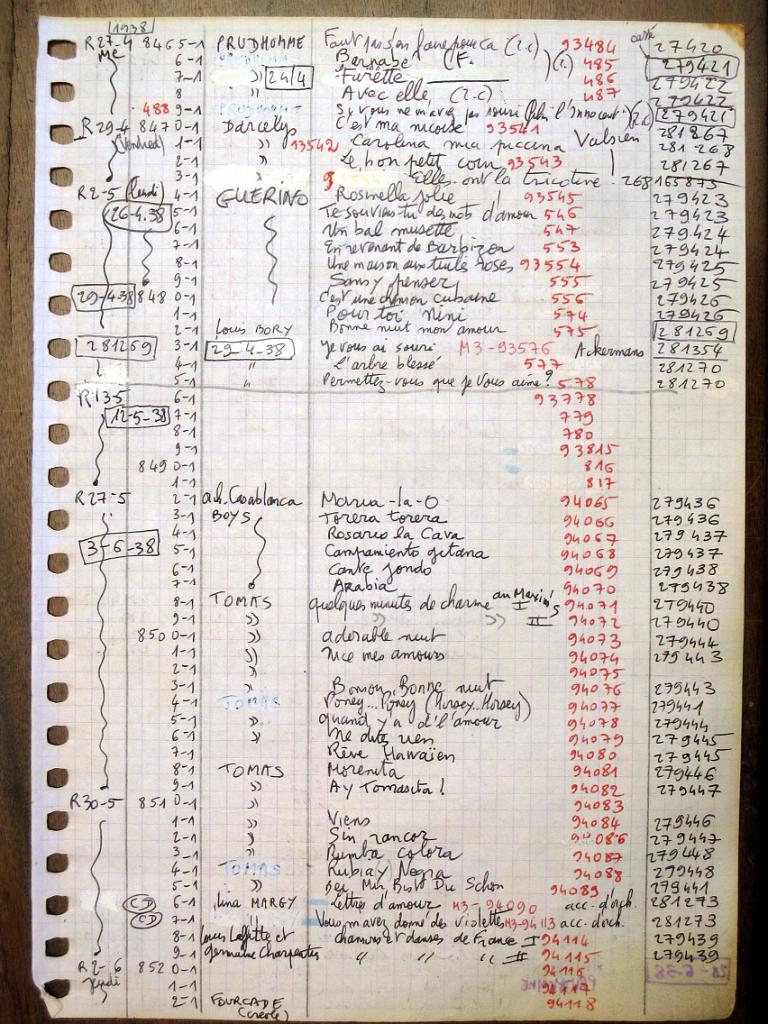 1938
R27-4 8465-1 PRUDHOMME Faut pas s'en faire pour ça (2.c) 93484 27420
Me 6-1 Bernabé (F. 485 279421
7-1 » 24/4 Furette 486 279422
8 » Avec elle (2.c) 487 279422
488 9-1 PRUDHOMME Si vous ne m'avez pas souri 279421
R29-4 8470-1 Darcelys C'est ma nicoise 93541 281267
(Vendredi) 1-1 » 93542 Carolina mia piccina Valsien 281268
2-1 » Le bon petit coin 93543 281267
3-1 » Elles ont la tricotine 268 165875
R2-5 (lundi) 4-1 GUERINO Rosinella jolie 93545 279423
26-4.38 5-1 Te souviens-tu des mots d'amour 546 279423
6-1 Un bal musette 547 279424
7-1 En revenant de Barbizon 553 279424
8-1 Une maison aux tuiles roses 93554 279425
9-1 Sans y penser 555 279425
29-4-38 848 0-1 C'est une chanson cubaine 556 279426
1-1 Pour toi Nini 574 279426
2-1 Louis BORY Bonne nuit mon amour 575 281269
281269 3-1 29-4-38 Je vous ai souri M3-93576 Ackermans 281354
4-1 " L'arbre blessé 577 281270
5-1 " Permettez-vous que je vous aime? 578 281270
R13-5 6-1 93778
12-5-38 7-1 779
8-1 780
9-1 93815
849 0-1 816
1-1 817
R27-5 2-1 Casablanca Maria-la-O 94065 279436
3-1 BOYS Torera torera 94066 279436
4-1 Rosario la Cava 94067 279437
3-6-38 5-1 Campamiento gitana 94068 279437
6-1 Cante jondo 94069 279438
7-1 Arabia 94070 279438
8-1 TOMAS quelques minutes de charme au Maxim's I 94071 279440
9-1 » » » II 94072 279440
850 0-1 » adorable nuit 94073 279444
1-1 » Nice mes amours 94074 279443
2-1 » 94075
3-1 » Bonsoir, Bonne nuit 94076 279443
4-1 TOMAS Poney...Poney (Horsey..Horsey) 94077 279441
5-1 » quand y a d'l'amour 94078 279444
6-1 » Ne dites rien 94079 279445
7-1 Rêve Hawaïen 94080 279445
8-1 TOMAS Morenita 94081 279446
9-1 » Ay Tomasita! 94082 279447
R30-5 851 0-1 » 94083
1-1 » Viens 94084 279446
2-1 » Sin rancor 94086 279447
3-1 » Rumba colora 94087 279448
4-1 TOMAS Rubia(y) Negra 94088 279448
5-1 » Bei Mir Bist Du Schon 94089 279441
CD 6-1 Lina MARGY Lettre d'amour M3-94090 acc. d'orch. 281273
CD 7-1 " Vous m'avez donné des violettes M3-94113 acc. d'orch. 281273
8-1 Louis Laffitte et chansons et danses de France I 94114 279439
9-1 Germaine Charpentis " " " II 94115 279439
R2-6 852 0-1 94116
Jeudi 1-1 94117
2-1 FOURCADE 94118
(créole)